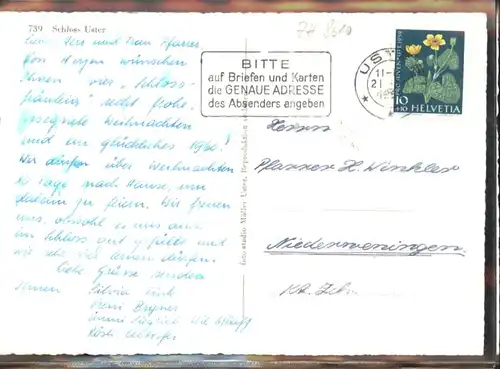 739 Schloss Uster
Liebe Herr und Frau Pfarrer
Von Herzen wünschen
Ihnen vier "Schloss-
fräulein" recht frohe,
gesegnete Weihnachten
und ein glückliches 1960!
Wir dürfen über Weihnachten
10 Tage nach Hause, um
daheim zu feiern. Wir freuen
uns, obwohl es uns auch
im Schloss gut gefällt und
wir sehr viel lernen dürfen.
Liebe Grüsse senden
Ihnen Silvia
Foto studio Müller Uster. Reproduktion
BITTE
auf Briefen und Karten
die GENAUE ADRESSE
des Absenders angeben
USTER
11-
21.
PRO JUVENTUTE 1959
10
+10 HELVETIA
Herrn
Pfarrer H. Winkler
Niederweningen
Kt. Zch.